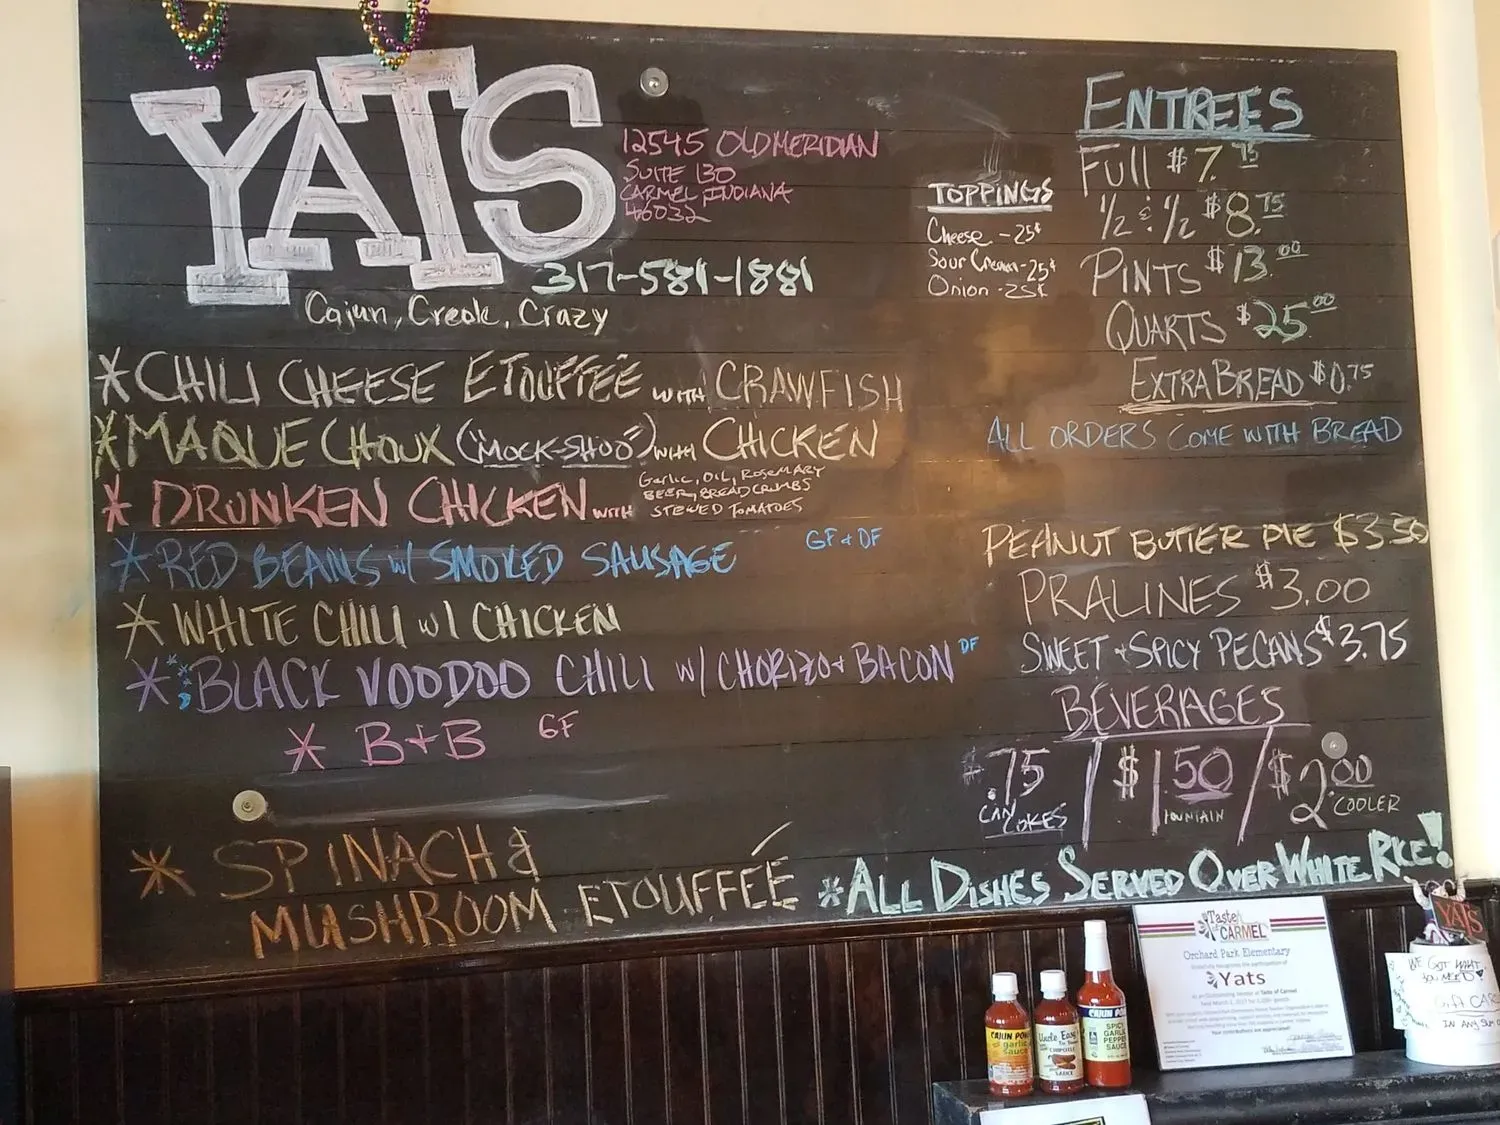 YATS
12545 OLD MERIDIAN
SUITE 130
CARMEL, INDIANA
46032
317-581-1881
Cajun, Creole, Crazy
* CHILI CHEESE ETOUFFEE WITH CRAWFISH
* MAQUE CHOUX ("MOCK-SHOO") WITH CHICKEN
* DRUNKEN CHICKEN WITH
Garlic, OIL, ROSEMARY
BEER, BREADCRUMBS
STEWED TOMATOES
* RED BEANS w/ SMOKED SAUSAGE GF & DF
* WHITE CHILI w/ CHICKEN
* BLACK VOODOO CHILI w/ CHORIZO + BACON DF
* B+B GF
* SPINACH &
MUSHROOM ETOUFFEÉ
TOPPINGS
Cheese - 25¢
Sour Cream - 25¢
Onion - 25¢
ENTREES
Full $7.75
1/2 & 1/2 $8.75
PINTS $13.00
QUARTS $25.00
EXTRA BREAD $0.75
ALL ORDERS COME WITH BREAD
PEANUT BUTTER PIE $3.50
PRALINES $3.00
SWEET + SPICY PECANS $3.75
BEVERAGES
$.75 / $1.50 / $2.00
CAN COKES FOUNTAIN COOLER
*ALL DISHES SERVED OVER WHITE RICE!
CAJUN POWER
garlic
sauce
Uncle Easy
CHIPOTLE
SAUCE
CAJUN POWER
SPICY
GARLIC
PEPPER
SAUCE
Taste of CARMEL
Orchard Park Elementary
Yats
YATS
WE GOT WHAT
YOU NEED!
Gift CARDS
IN ANY SUM